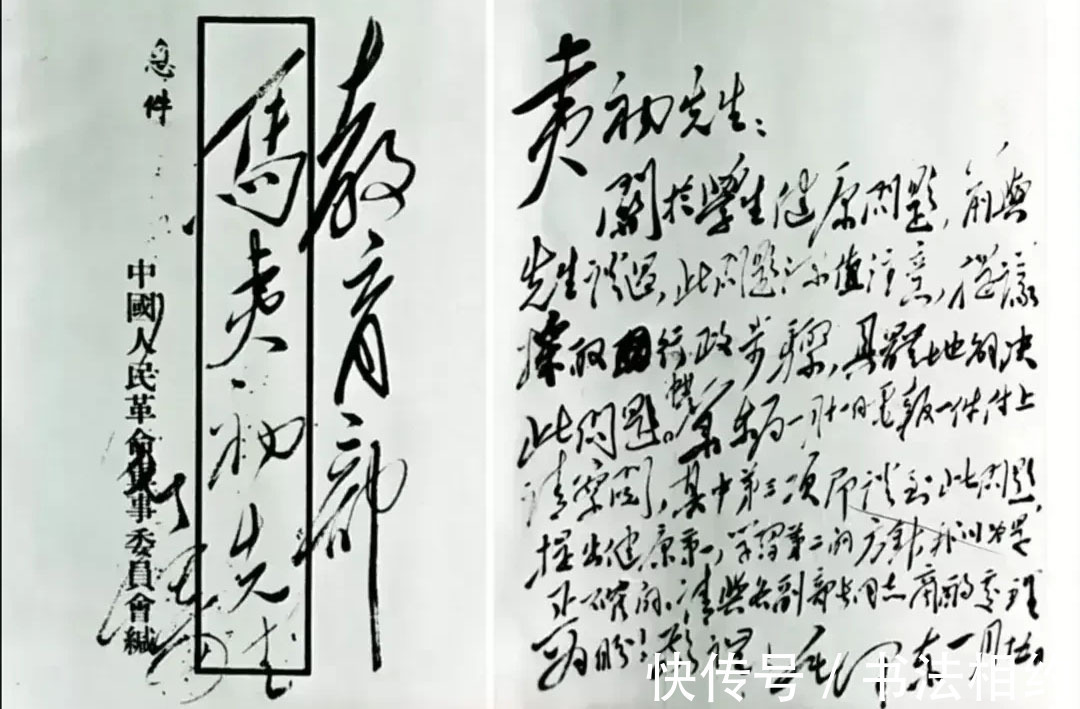 教育部
馬夷初先生
急件
中國人民革命軍事委員會緘
夷初先生：
關於學生健康問題，前與
先生談過，此問題深值注意，提議
採取行政步驟，具體地解決
此問題。華東局一月十一日電報一件付上
請察閱，其中第三項即談到此問題，
提出健康第一，學習第二的方針，我以為是
正確的。請與各副部長同志商酌處理
為盼！敬禮 毛澤東 一月十五
快传号 / 书法相